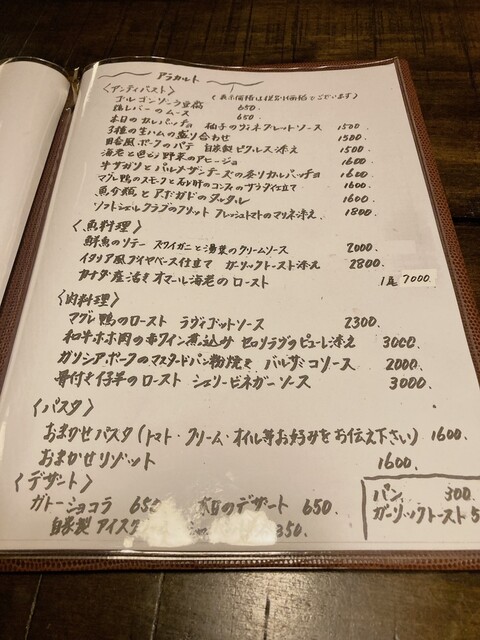 アラカルト
〈アンティパスト〉 (表示価格は税別価格でございます)
ゴルゴンゾーラ豆腐 650.
鶏レバーのムース 650.
本日のカルパッチョ 柚子のヴィネグレットソース 1500
3種の生ハムの盛り合わせ 1500
田舎風ポークのパテ 自家製ピクルス添え 1500
海老と色どり野菜のアヒージョ 1600
牛サガリとパルメザンチーズの炙りカルパッチョ 1600
マグレ鴨のスモークと砂肝のコンフィのサラダ仕立て 1600
魚介類とアボガドのタルタル 1600
ソフトシェルクラブのフリット フレッシュトマトのマリネ添え 1800
〈魚料理〉
鮮魚のソテー ズワイガニと湯葉のクリームソース 2000
イタリア風ブイヤベース仕立て ガーリックトースト添え 2800
カナダ産活きオマール海老のロースト 1尾 7000.
〈肉料理〉
マグレ鴨のロースト ラヴィゴットソース 2300.
和牛ホホ肉の赤ワイン煮込み セロリラヴのピューレ添え 3000.
ガリシアポークのマスタードパン粉焼き バルサミコソース 2000.
骨付き仔羊のロースト シェリービネガーソース 3000.
〈パスタ〉
おまかせパスタ(トマト・クリーム・オイル等お好みをお伝え下さい) 1600.
おまかせリゾット 1600.
〈デザート〉
ガトーショコラ 650 本日のデザート 650.
自家製アイス 350.
パン 300.
ガーリックトースト